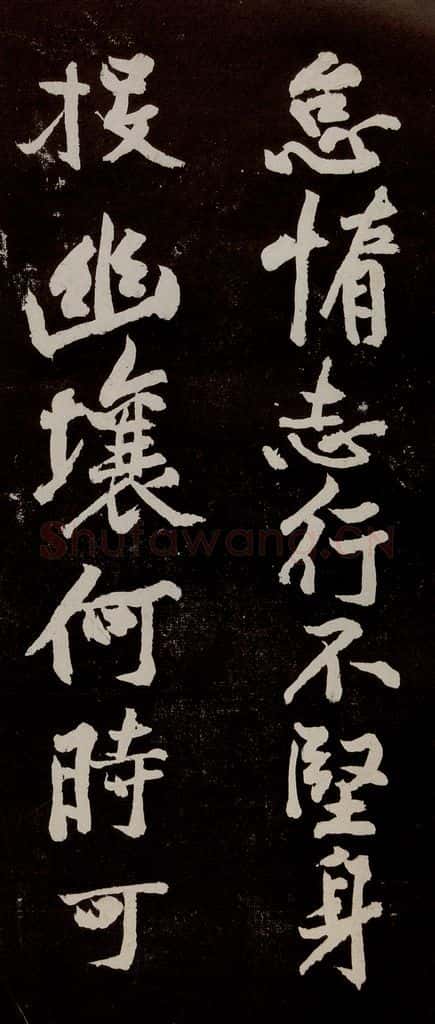 怠惰志行不堅身
投幽壤何時可
Shufawang.CN